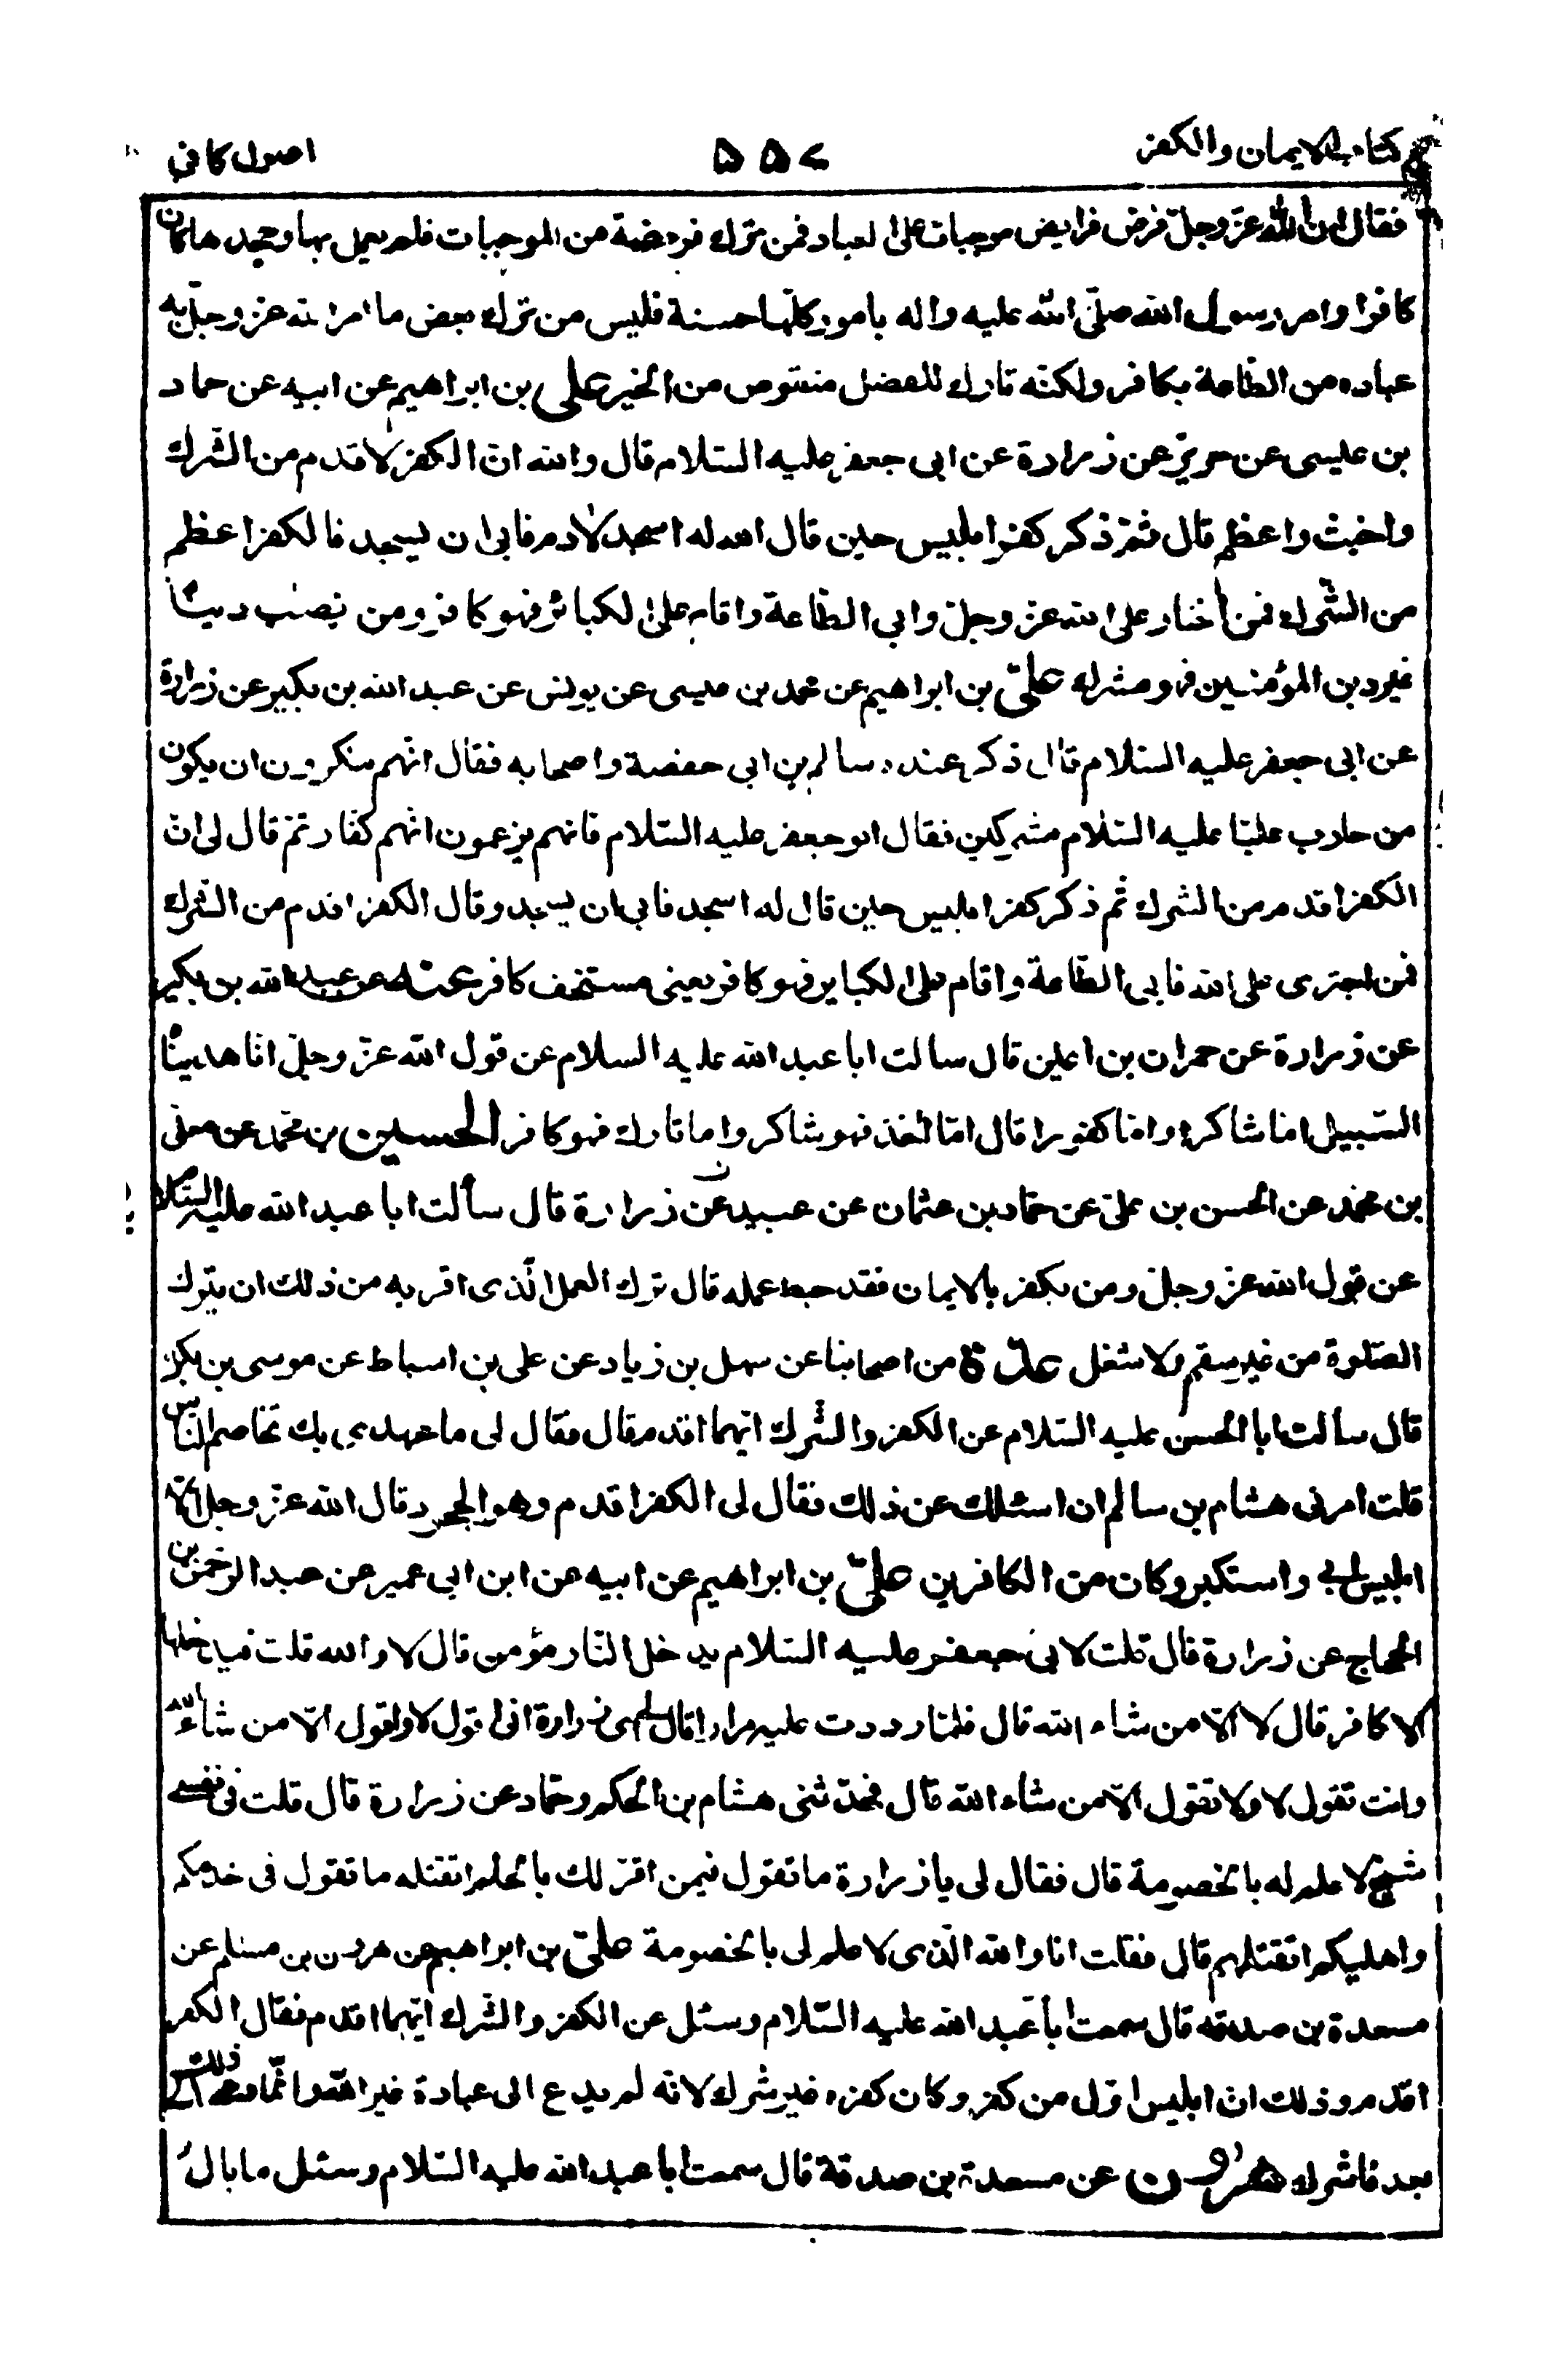 كتاب الايمان والكفر ۵۵۷ اصول كافي
فقال ان الله عزّ وجلّ فرض فرايض موجبات على العباد فمن ترك فريضة من الموجبات فلم يعمل بها وجحدها كان
كافرا وامر رسول الله صلّى الله عليه واله بامور كلّها حسنة فليس من ترك بعض ما امر الله عز وجلّ به
عباده من الطّاعة بكافر ولكنّه تارك للفضل منقوص من الخير علي بن ابراهيم عن ابيه عن حماد
بن عليسى عن حريز عن زرارة عن ابى جعفر عليه السّلام قال والله انّ الكفر لاقدم من الشّرك
واخبث واعظم قال ثمّ ذكر كفر ابليس حين قال الله له اسجد لادم فابى ان يسجد فالكفر اعظم
من الشّرك فمن اختار على الله عزّ وجلّ وابى الطّاعة واقام على الكبائر فهو كافر ومن نصب دينًا
غير دين المؤمنين فهو مشرك عليّ بن ابراهيم عن محمد بن عيسى عن يونس عن عبد الله بن بكير عن زرارة
عن ابى جعفر عليه السّلام قال ذكر عنده سالم بن ابى حفصة واصحابه فقال انّهم ينكرون ان يكون
من حارب عليّا عليه السّلام مشركين فقال ابو جعفر عليه السّلام فانهم يزعمون انّهم كفّار ثمّ قال لى انّ
الكفر اقدم من الشرك ثم ذكر كفر ابليس حين قال له اسجد فابى ان يسجد وقال الكفر اقدم من الشّرك
فمن اجترى على الله فابى الطّاعة واقام على الكباير فهو كافر يعنى مستخف كافر عنه عن عبد الله بن بكير
عن زرارة عن حمران بن اعين قال سالت ابا عبد الله عليه السلام عن قول الله عزّ وجلّ انّا هديناه
السّبيل امّا شاكرا وامّا كفورا قال امّا اخذ فهو شاكر واما تارك فهو كافر الحسين بن محمّد عن معلى
بن محمّد عن الحسن بن علىّ عن حمّاد بن عثمان عن عبيد عن زرارة قال سألت ابا عبد الله عليه السّلام
عن قول الله عز وجلّ ومن يكفر بالايمان فقد حبط عمله قال ترك العمل الّذى اقر به من ذلك ان يترك
الصّلوة من غير سقم ولا شغل عدّة من اصحابنا عن سهل بن زياد عن على بن اسباط عن موسى بن بكير
قال سالت ابا الحسن عليه السّلام عن الكفر والشّرك ايّهما اقدم قال فقال لى ما عهدى بك تخاصم النّاس
قلت امرنى هشام بن سالم ان اسئلك عن ذلك فقال لى الكفر اقدم وهو الجحود قال الله عزّ وجل الّا
ابليس ابى واستكبر وكان من الكافرين عليّ بن ابراهيم عن ابيه عن ابن ابى عمير عن عبد الرّحمن بن
الحجاج عن زرارة قال قلت لابى جعفر عليه السّلام يدخل النّار مؤمن قال لا والله قلت فيدخلها
الا كافر قال لا الّا من شاء الله قال فلمّا رددت عليه مرارا قال لى اى زرارة انى اقول لا واقول الّا من شاء الله
وانت تقول لا ولا تقول الّا من شاء الله قال فحدّثنى هشام بن الحكم وحمّاد عن زرارة قال قلت فى نفسى
شيخ لا علم له بالخصومة قال فقال لى يا زرارة ما تقول فيمن اقرّ لك بالحكم اتقتله ما تقول فى خدمكم
واهليكم اتقتلهم قال فقلت انا والله الّذى لا علم لى بالخصومة عليّ بن ابراهيم عن هرون بن مسلم عن
مسعدة بن صدقه قال سمعت ابا عبد الله عليه السّلام وسئل عن الكفر والشّرك ايّهما اقدم فقال الكفر
اقدم وذلك انّ ابليس اوّل من كفر وكان كفره غير شرك لانه لم يدع الى عبادة غير الله وانّما دعا الى ذلك
بعد فاشرك هرون عن مسعدة بن صدقة قال سمعت ابا عبد الله عليه السّلام وسئل ما بال